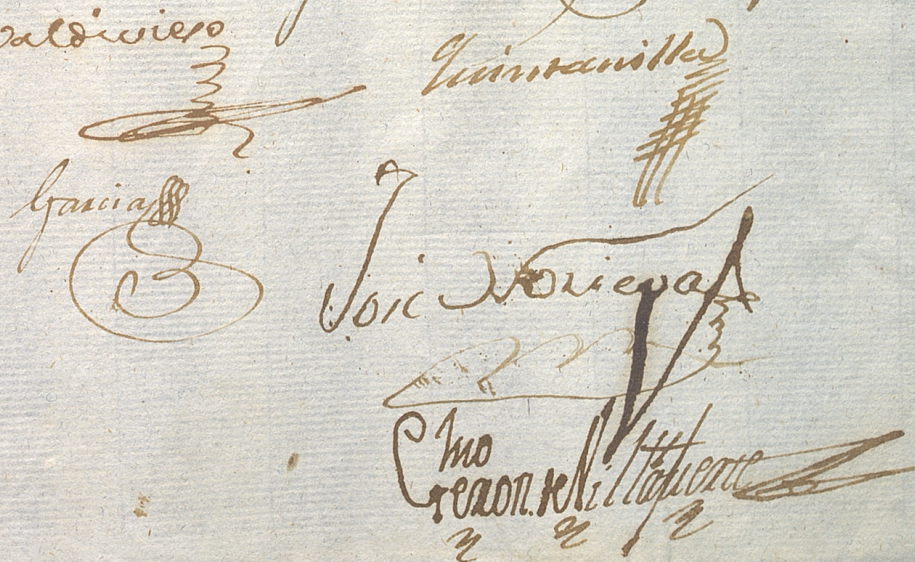 Valdivieso
Quintanilla
Garcia
Jose Noriega
Geron. de Villafuerte